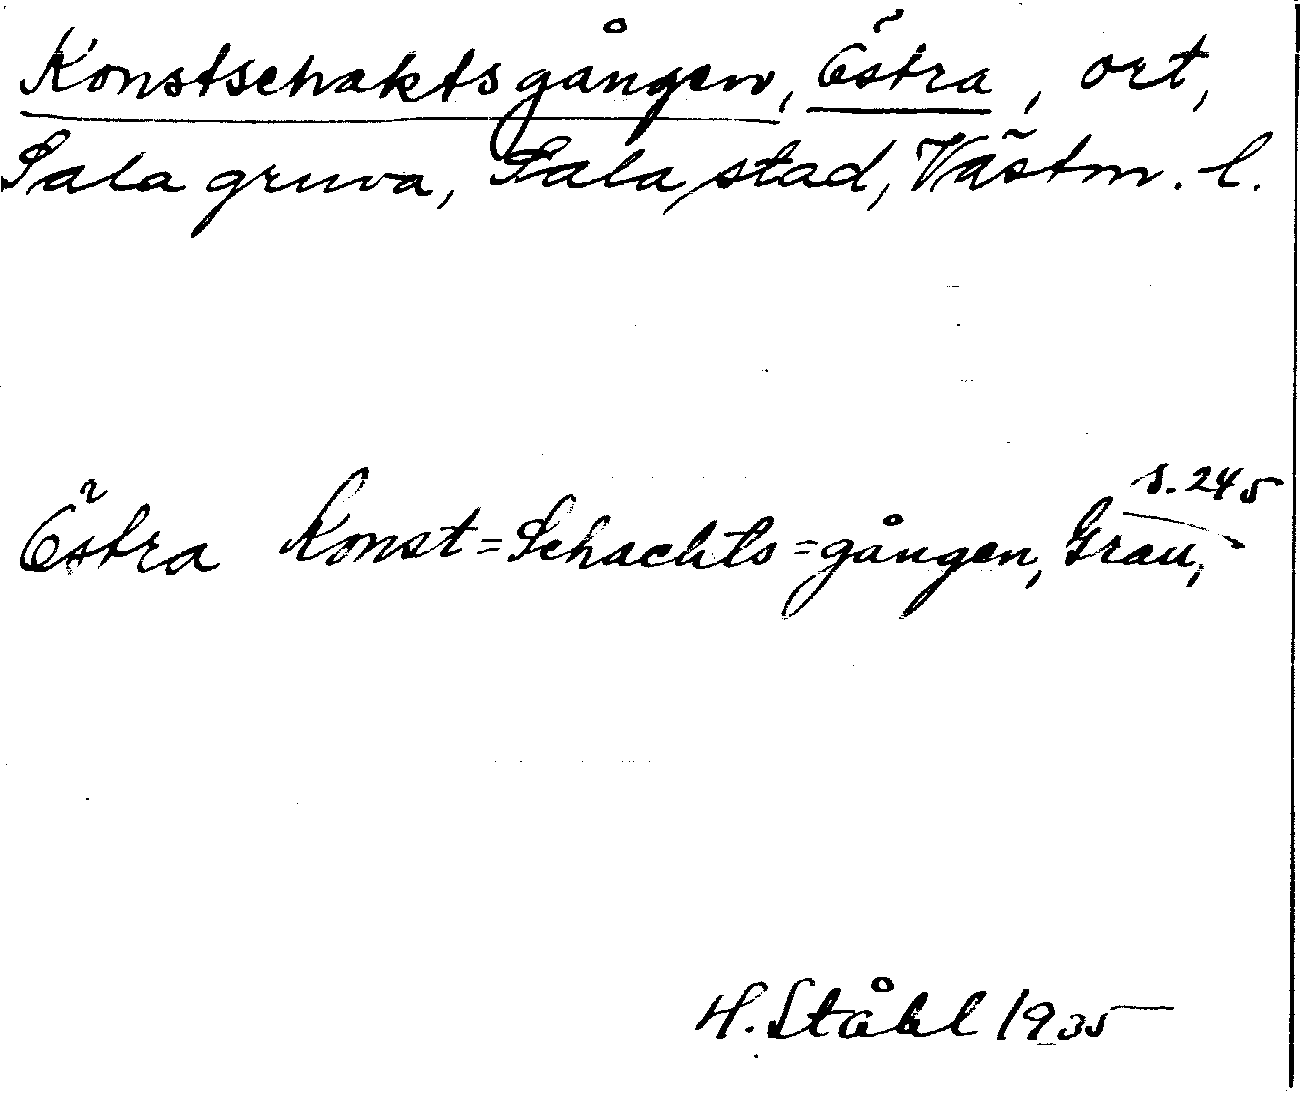 Konstschaktsgången, Östra, ort,
Sala gruva, Sala stad, Västm. l.
Östra Konst=Schachts=gången, Grau, s. 245
H. Ståhl 1935